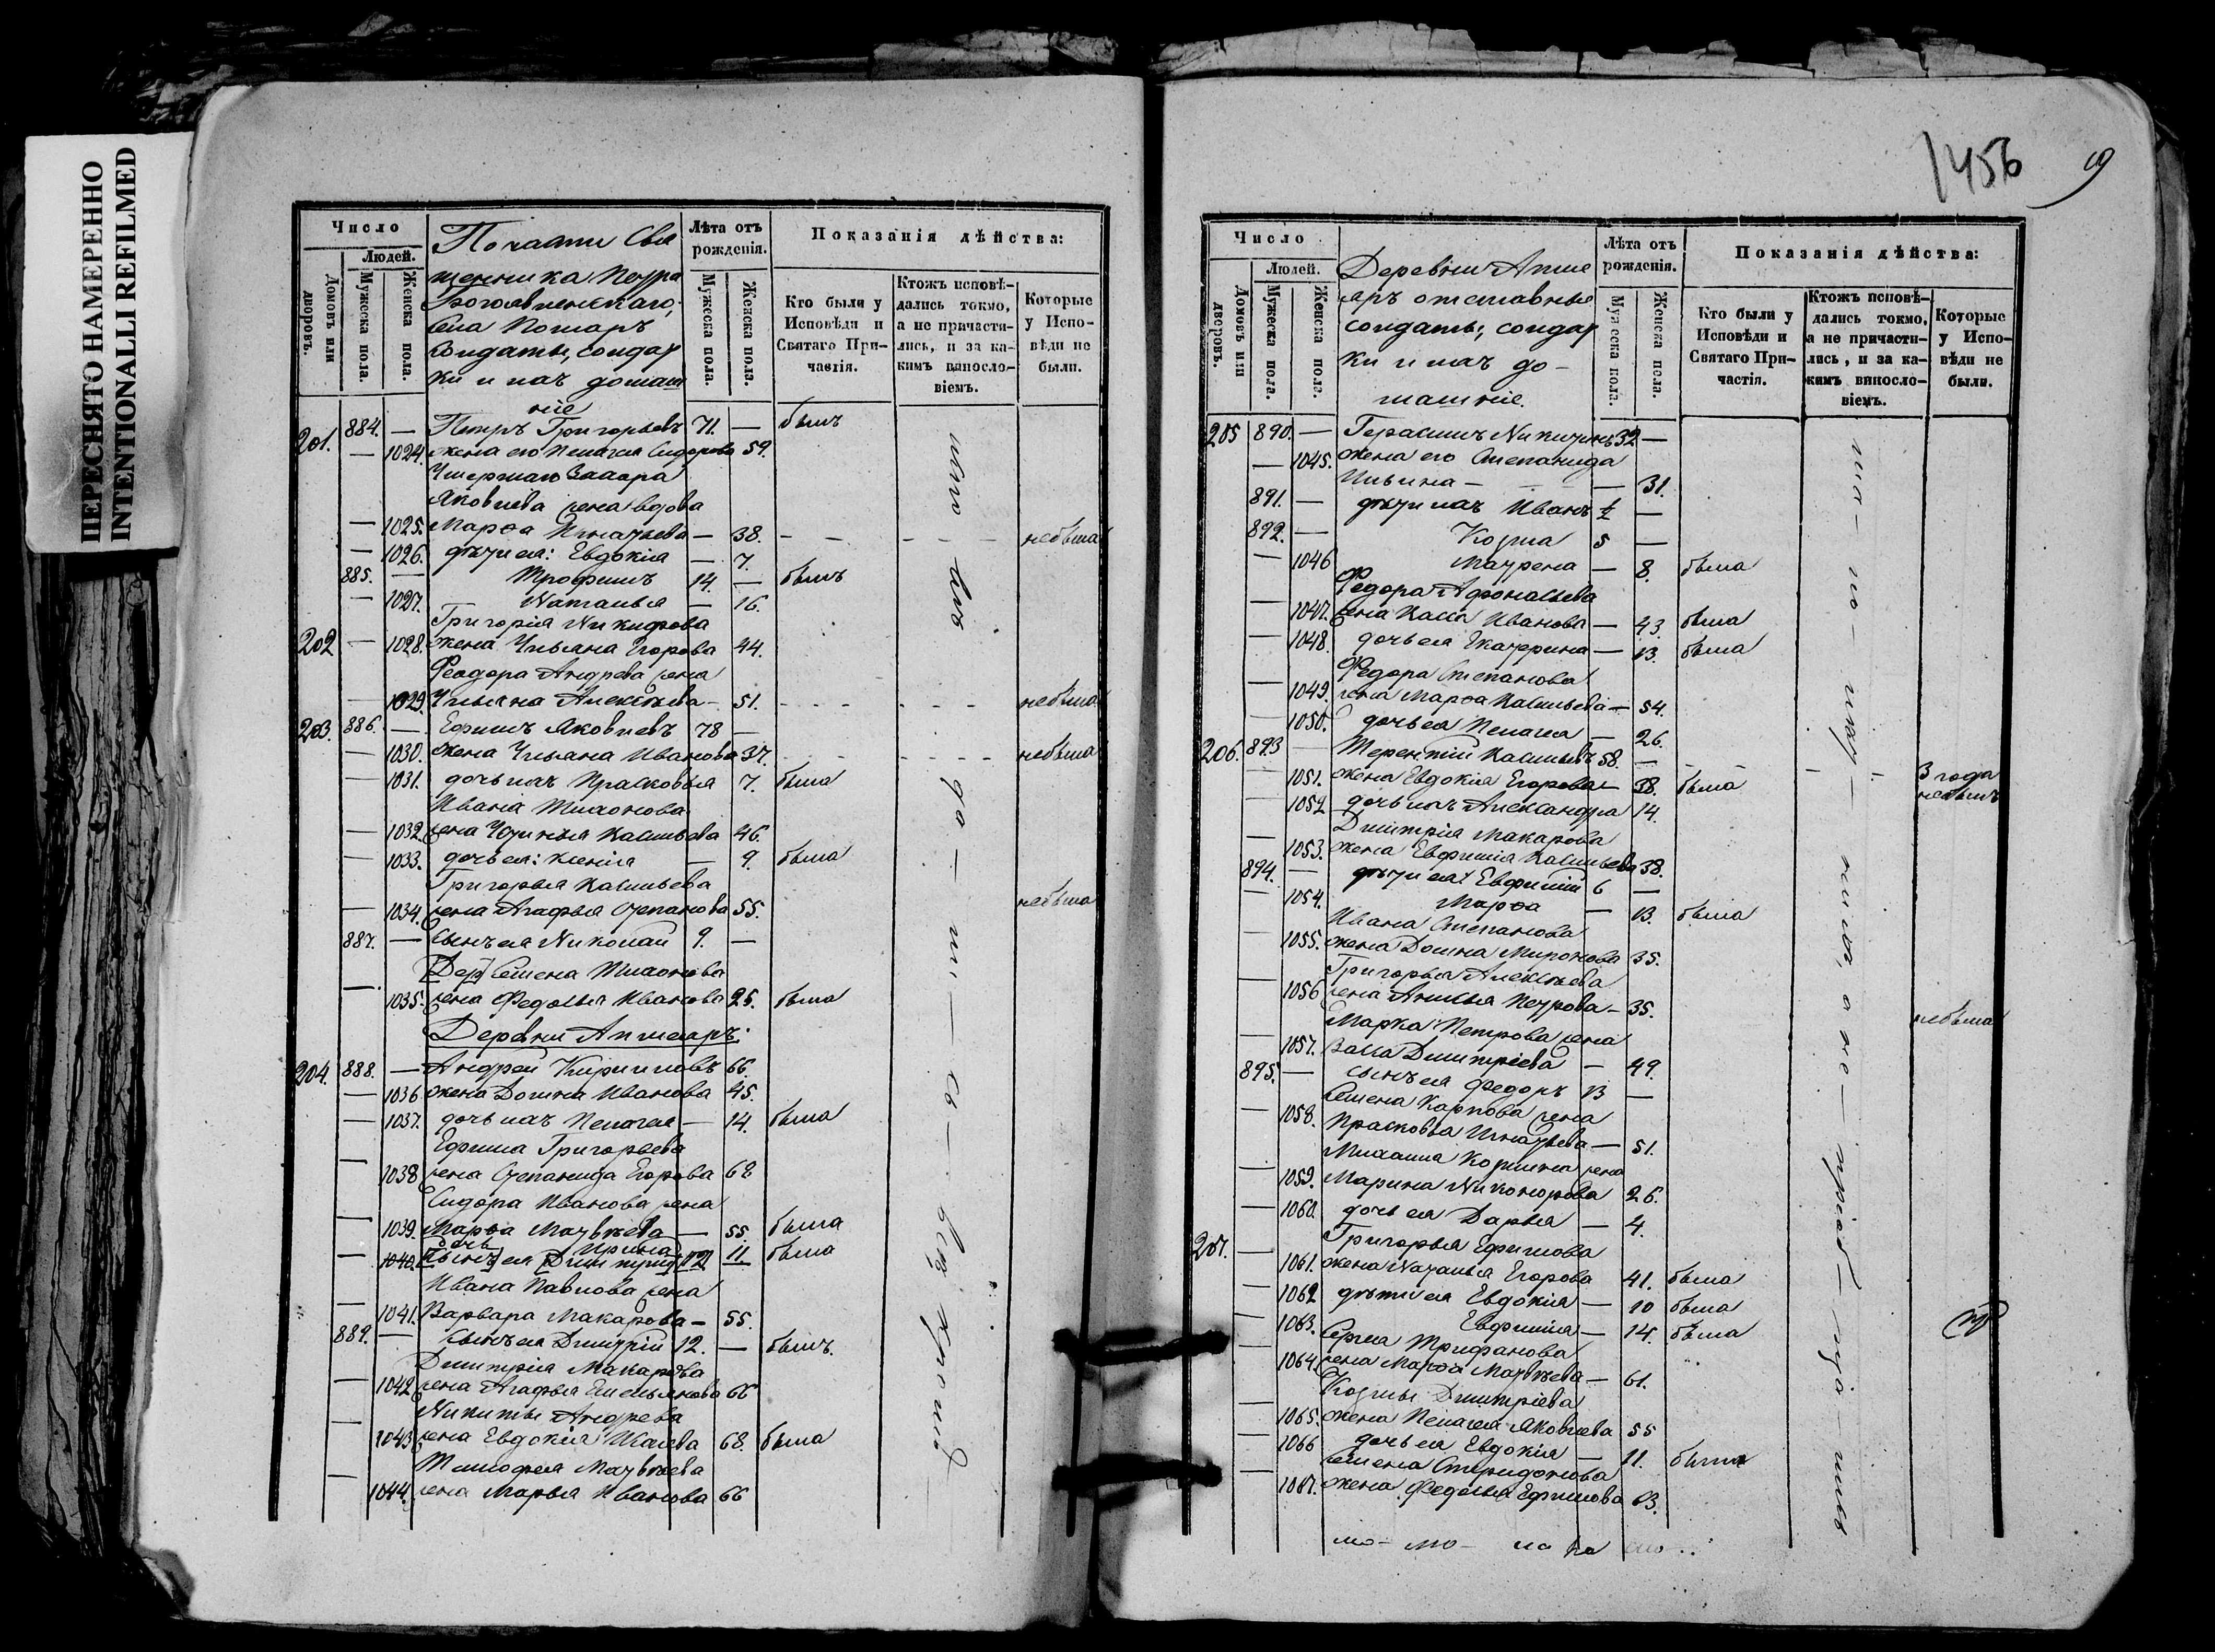 ПЕРЕСНЯТО НАМЕРЕННО
INTENTIONALLI REFILMED
Число
Людей.
Домовъ или дворовъ.
Мужеска пола.
Женска пола.
По части Свя
щенника Петра
Богоявленскаго,
Села
Солдаты, солдат
ки и ихъ домаш
ніе
Лѣта отъ рожденія.
Мужеска пола.
Женска пола.
Показанія дѣйства:
Кто были у Исповѣди и Святаго Причастія.
Ктожъ исповѣдались токмо, а не причастились, и за какимъ винословіемъ.
Которые у Исповѣди не были.
201. 884. — Петръ Григорьевъ 71. — былъ
— 1024. жена его Пелагея Сидорова 59.
Умершаго Захара
Яковлева жена вдова
— 1025. Марѳа Игнатьева — 38. небыла
— 1026. дѣти ея: Евдокія — 7.
885. — Трофимъ 14. — былъ
— 1027. Наталья — 16.
Григорія Никифрова
202 — 1028. жена Ульяна Егорова 44.
Феодора Андрева жена
— 1029. Ульяна Алексѣева — 51. небыла
203. 886. — Ефимъ Яковлевъ 78 —
— 1030. жена Ульяна Иванова 37. небыла
— 1031. дочь ихъ Прасковья 7. была
Иванія Тихонова
— 1032. жена Устинья Васильева 46.
— 1033. дочь ея: Ксенія — 9. была
Григорья Васильева
— 1034. жена Агафья Степанова 55. небыла
887. — сынъ ея Николай 9. —
[Дер] Семена Тихонова
— 1035. жена Федосья Иванова 25. была
Деревни
204. 888. — Андрей Кирилловъ 66.
— 1036 жена Домна Иванова 45.
— 1037. дочь ихъ Пелагея — 14. была
Ефима Григорьева
— 1038 жена Степанида Егорова 68
Сидора Иванова жена
— 1039. Марѳа Матвѣева — 55. была
дочь Ирина
— 1040. [сынъ] ея [Димитрій] 12 11. была
Ивана Павлова жена
— 1041. Варвара Макарова — 55.
889. — сынъ ея Димитрій 12. — былъ.
Димитрія Макарова
— 1042 жена Агафья Емельянова 66
Никиты Андрева
— 1043 жена Евдокія Исаева 68. была
Тимофея Матвѣева
— 1044. жена Марья Иванова 66
1456
Число
Людей.
Домовъ или дворовъ.
Мужеска пола.
Женска пола.
Деревни
отставные
солдаты, солдат
ки и ихъ до-
машніе.
Лѣта отъ рожденія.
Мужеска пола.
Женска пола.
Показанія дѣйства:
Кто были у Исповѣди и Святаго Причастія.
Ктожъ исповѣдались токмо, а не причастились, и за какимъ винословіемъ.
Которые у Исповѣди не были.
205 890. — Герасимъ Никитинъ 32 —
— 1045. жена его Степанида
Ильина — — 31.
891. — дѣти ихъ Иванъ ½ —
892. — Козма 5 —
— 1046 Маурена — 8. была
Федора Афонасьева
— 1047. жена Васса Иванова — 43. была
— 1048. дочь ея Екатерина — 13. была
Федора Степанова
— 1049. жена Марѳа Васильева — 54.
— 1050. дочь ея Пелагея — 26.
206. 893 — Терентій Васильевъ 58. — 3 года небылъ
— 1051. жена Евдокія Егорова — 38. была
— 1052 дочь ихъ Александра 14.
Димитрія Макарова
— 1053. жена Евфимія Васильева 38.
894. — дѣти ея: Евфимій 6 —
— 1054. Марѳа — 13. была
Ивана Степанова
— 1055. жена Домна Миронова 35.
Григорья Алексѣева
— 1056 жена Анисья Петрова — 35. небыла
Марка Петрова жена
— 1057. Васса Димитріева — 49.
895. — сынъ ея Федоръ 13 —
Семена Карпова жена
— 1058. Прасковья Игнатьева — 51.
Михаила Козмина жена
— 1059. Марина Никонорова 26.
— 1060. дочь ея Дарья — 4.
Григорья Ефимова
207. — 1061. жена Наталья Егорова 41. была
— 1062 дѣти ея Евдокія — 10 была
— 1063. Евфимія — 14. была
Сергея Трифанова
— 1064 жена Марѳа Матвѣева — 61.
Козмы Димитріева
— 1065. жена Пелагея Яковлева 55
— 1066 дочь ея Евдокія — 11. была
Семена Спиридонова
— 1067. жена Федосья Ефимова 63.